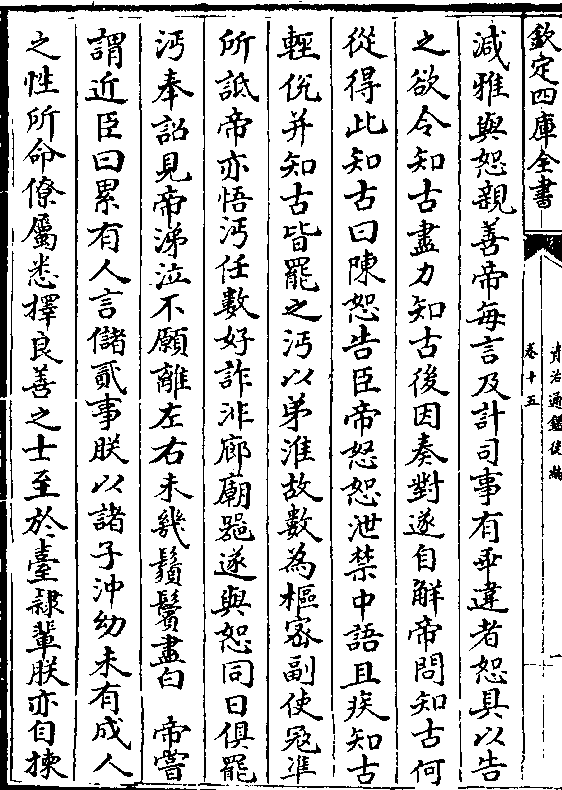 欽定四庫全書
卷十五
資治通鑑後編
減雅與恕親善帝每言及計司事有乖違者恕具以告
之欲令知古盡力知古後因奏對遂自解帝問知古何
從得此知古曰陳恕告臣帝怒恕泄禁中語且疾知古
輕侻并知古皆罷之沔以弟淮故數為樞密副使冦準
所詆帝亦悟沔任數好詐非廊廟器遂與恕同日俱罷
沔奉詔見帝涕泣不願離左右未幾鬚鬢盡白　帝嘗
謂近臣曰累有人言儲貳事朕以諸子沖幼未有成人
之性所命僚屬悉擇良善之士至於臺隸輩朕亦自揀